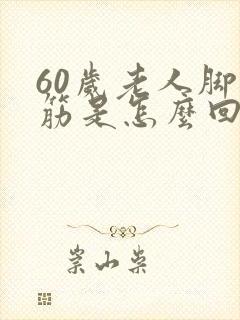 60歲老人脚
筋是怎麼回
崇山柴